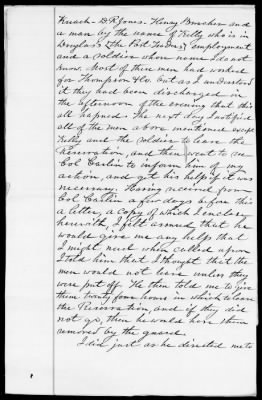 Kusach - D R Jones. Henry Brincher and
a man by the name of Kelly who is in
Douglas's (the Post Trader's) employment
and a soldier whose name I do not
know. Most of these men had worked
for Thompson & Co. But as I understand
it they had been discharged in
the afternoon of the evening that this
all hapned. The next day I notified
all of the men above mentioned except
Kelly and the soldier to leave the
Reservation, and then went to see
Col Carlin to inform him of my
action, and get his help if it was
necessary. Having received from
Col Carlin a few days before this
a letter, a copy of which I enclose
herewith, I felt assured that he
would give me any help that
I might need when called upon.
I told him that I thought that the
men would not leave unless they
were put off. He then told me to give
them twenty four hours in which to leave
the Reservation, and if they did
not go, then he would have them
removed by the guard.
I did just as he directed me to